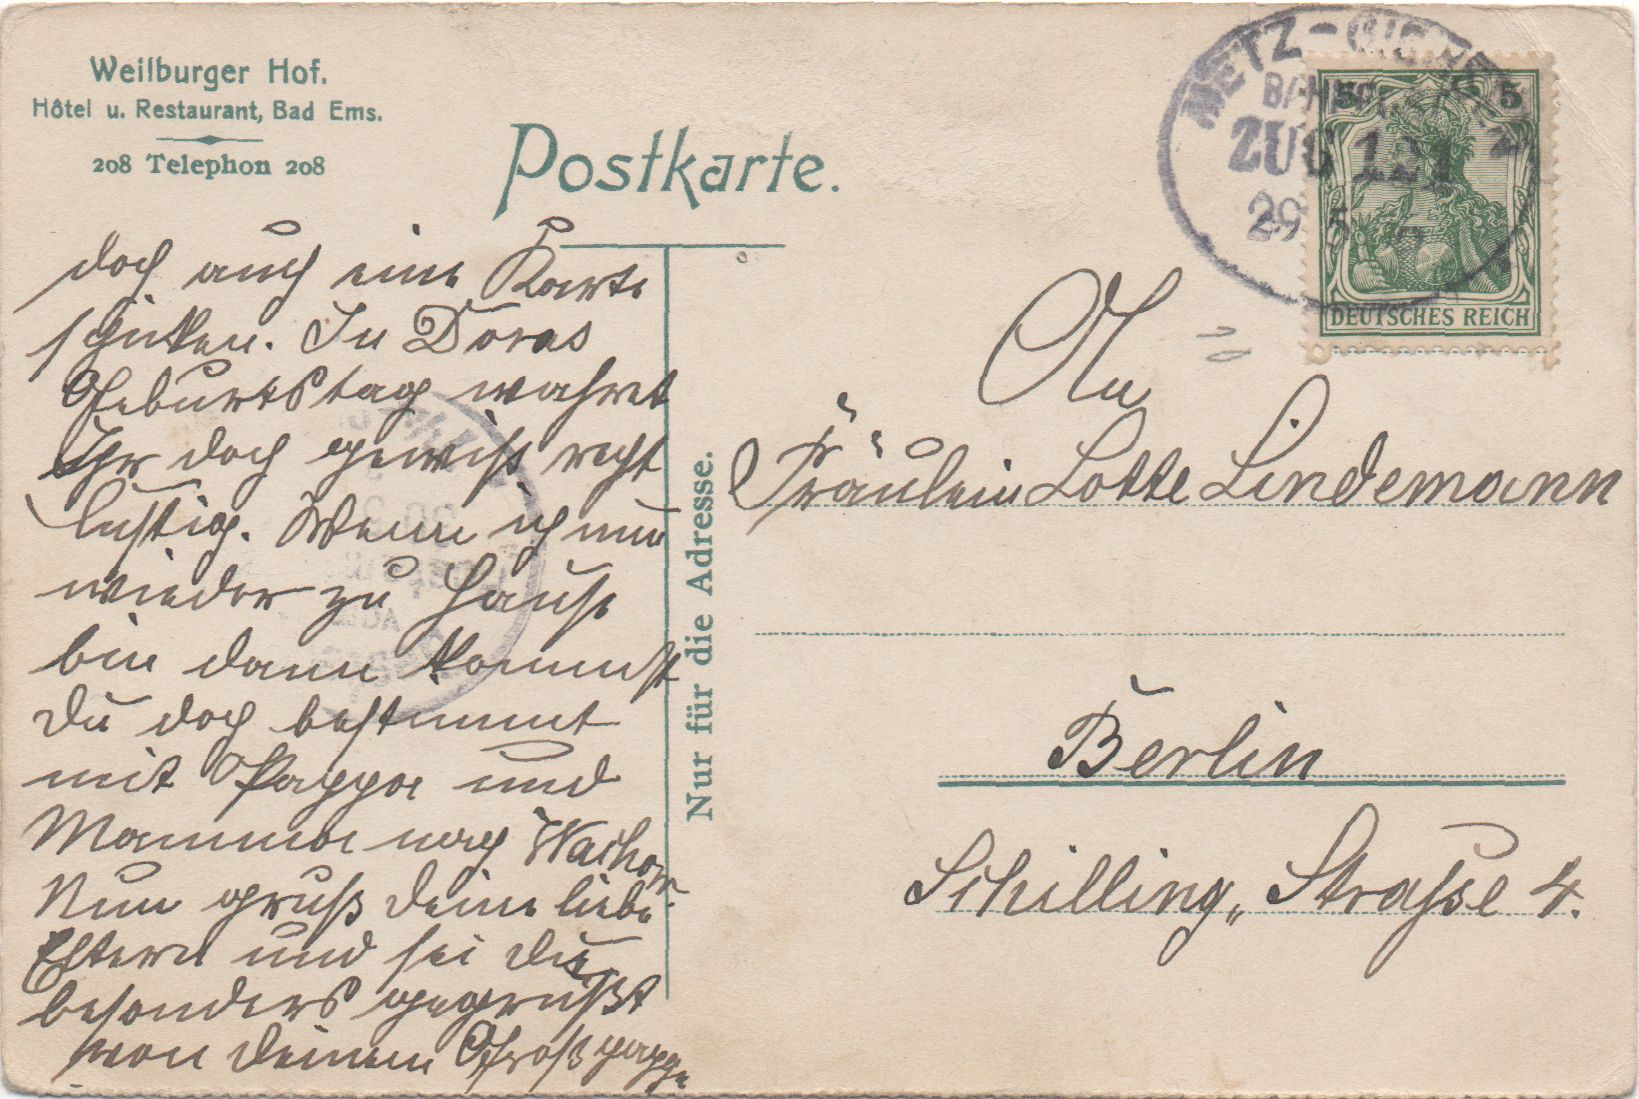 Weilburger Hof.
Hôtel u. Restaurant, Bad Ems.
208 Telephon 208
Postkarte.
METZ
ZUG 121
29 5
5 5
DEUTSCHES REICH
doch auch eine Karte
schicken. Zu Doras
Geburtstag wahret
Ihr doch gewiß recht
lustig. Wenn ich nun
wieder zu Hause
bin dann kommst
Du doch bestimmt
mit Pappa und
Mamma nach
Nun gruß deine liebe
Eltern und sei Du
besonders gegrußt
von deinem Großpappa
Nur für die Adresse.
An
Fräulein Lotte Lindemann
Berlin
Schilling„ Straße 4.